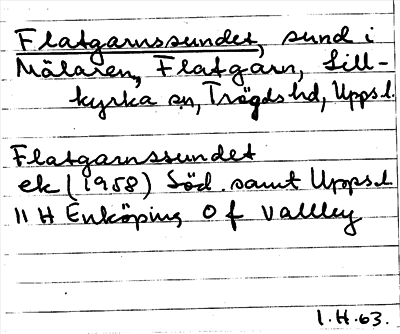 Flatgarnssundet, sund i
Mälaren, Flatgarn, Lill-
kyrka sn, Trögds hd, Upps.l.
Flatgarnssundet
ek (1958) Söd. samt Upps.l.
11 H Enköping O f
1.H.63.